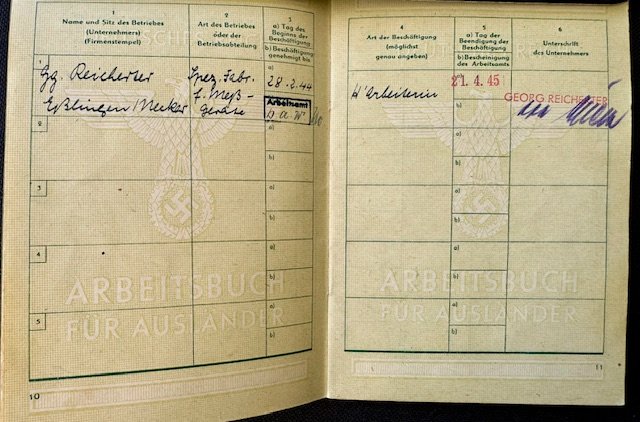 1
Name und Sitz des Betriebes
(Unternehmers)
(Firmenstempel)
2
Art des Betriebes
oder der
Betriebsabteilung
3
a) Tag des
Beginns der
Beschäftigung
b) Beschäftigung
genehmigt bis
Gg. Reicherter
Eßlingen/Neckar
Spez. Fabr.
f. Meß-
geräte
a)
28.2.44
Arbeitsamt
2
a)
b)
3
a)
b)
4
a)
b)
5
a)
b)
ARBEITSBUCH
FÜR AUSLÄNDER
10
4
Art der Beschäftigung
(möglichst
genau angeben)
5
a) Tag der
Beendigung der
Beschäftigung
b) Bescheinigung
des Arbeitsamts
6
Unterschrift
des Unternehmers
H'arbeiterin
21.4.45
GEORG REICHERTER
b)
a)
b)
a)
b)
a)
b)
a)
b)
ARBEITSBUCH
FÜR AUSLÄNDER
11